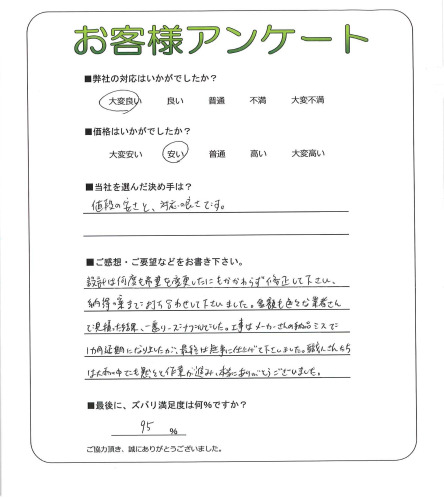 お客様アンケート
■弊社の対応はいかがでしたか?
大変良い 良い 普通 不満 大変不満
■価格はいかがでしたか?
大変安い 安い 普通 高い 大変高い
■当社を選んだ決め手は?
値段の安さと、対応の良さです。
■ご感想・ご要望などをお書き下さい。
設計は何度も希望を変更したにもかかわらず修正して下さい、
納得の案までに打ち合わせして下さいました。金額も色々な業者さん
で見積った結果、一番リーズナブルでした。工事はメーカーさんの納品ミスで
1カ月延期になりましたが、最終は無事に仕上げて下しました。職人さんたち
は大雨の中でも黙々と作業が進み、本当にありがとうございました。
■最後に、ズバリ満足度は何%ですか?
95 %
ご協力頂き、誠にありがとうございました。